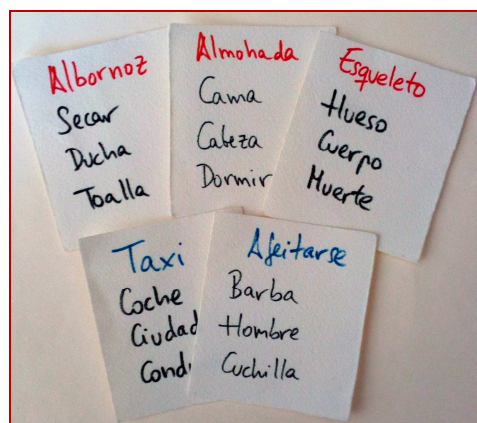 Albornoz
Secar
Ducha
Toalla
Almohada
Cama
Cabeza
Dormir
Esqueleto
Hueso
Cuerpo
Muerte
Taxi
Coche
Ciudad
Afeitarse
Barba
Hombre
Cuchilla